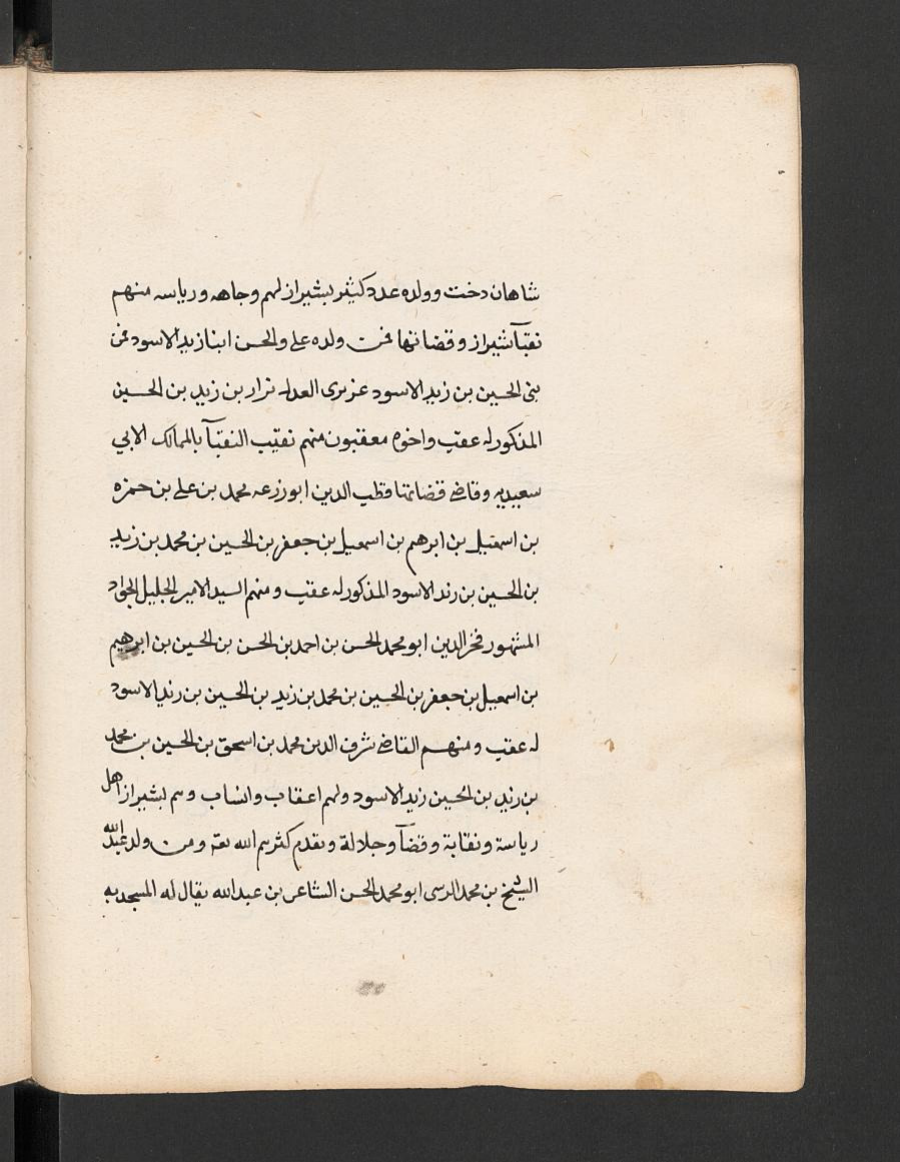 شاهان دخت وولده عدد كثير بشيراز لهم وجاهه ورياسه منهم
نقبآ شيراز وقضاتها فمن ولده على والحسن ابنا زيد الاسود فمن
بنى الحسين بن زيد الاسود عزيزى العدله نزار بن زيد بن الحسين
المذكور له عقب واخوه معقبون منهم نقيب النقبآ بالممالك الابي
سعيديه وقاضى قضاتمتا قطب الدين ابو زرعه محمد بن على بن حمزه
بن اسمعيل بن ابرهم بن اسمعيل بن جعفر بن الحسين بن محمد بن زيد
بن الحسين بن زيد الاسود المذكور له عقب ومنهم السيد الامير الجليل الجواد
المشهور فخر الدين ابو محمد الحسن بن احمد بن الحسن بن الحسين بن ابرهيم
بن اسمعيل بن جعفر بن الحسين بن محمد بن زيد بن الحسين بن زيد الاسود
له عقب ومنهم القاضى شرف الدين محمد بن اسحق بن الحسين بن محمد
بن زيد بن الحسين زيد الاسود ولهم اعقاب وانساب وهم بشيراز اهل
رياسة ونقابة وقضآ وجلالة وتقدم كثرهم الله تعه ومن ولد عبد الله
الشيخ بن محمد الرسى ابو محمد الحسن الشاعر بن عبد الله يقال له المسجد به